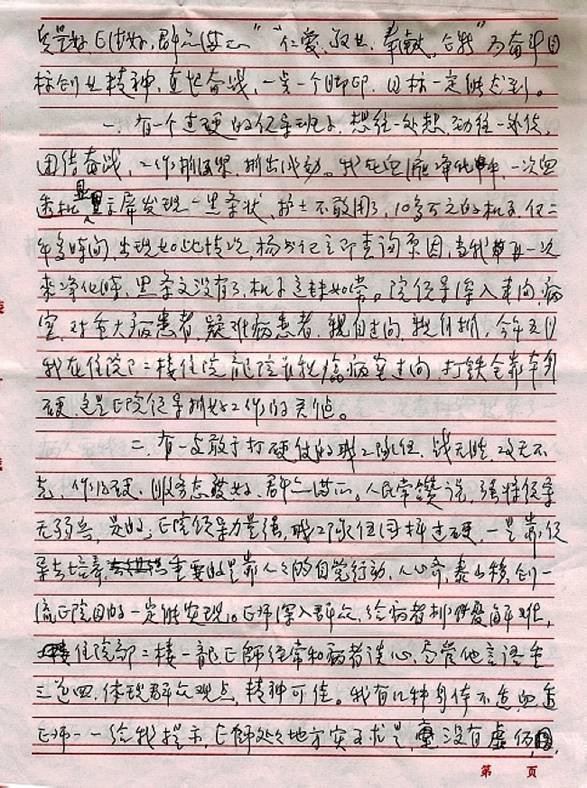 质量好、医德好、群众满意" "仁爱、敬业、奉献、合我"为奋斗目
标创业精神,直把奋战,一步一个脚印,目标一定能达到。
一、有一个过硬的领导班子,想往一处想,劲往一处使,
团结奋战,工作抓得紧,抓出成效。我在血液净化中,一次血
透机显示屏发现一黑条状,护士不敢用了,10多万元的机子,仅二
年多时间,出现如此情况,杨书记立即查询原因,当我再一次
来净化时,黑条文没有了,机子运转如常。院领导深入车间,病
室,对重大病患者,疑难病患者,亲自过问,亲自抓,今年五月
我在住院部二楼住院,院领导亲临病室过问,打铁全靠本身
硬,这是医院领导抓好工作的关键。
二、有一支敢于打硬仗的职工队伍,战无胜,攻无不
克,作风硬,服务态度好,群众满意。人民常赞说,强将领导
无弱兵,是的,医院领导力量强,职工队伍同样过硬,一是靠领
导去培养,重要的是靠人人的自觉行动,人心齐,泰山移,创一
流医院目的一定能实现。医师深入群众,给病者排忧解难,
住院部二楼一龙医师经常和病者谈心,尽管他言语重
三道四,体现群众观点,精神可佳。我有几种身体不适,血透
医师一一给我提示,医师处处地方实事求是,没有虚伪,
第 页